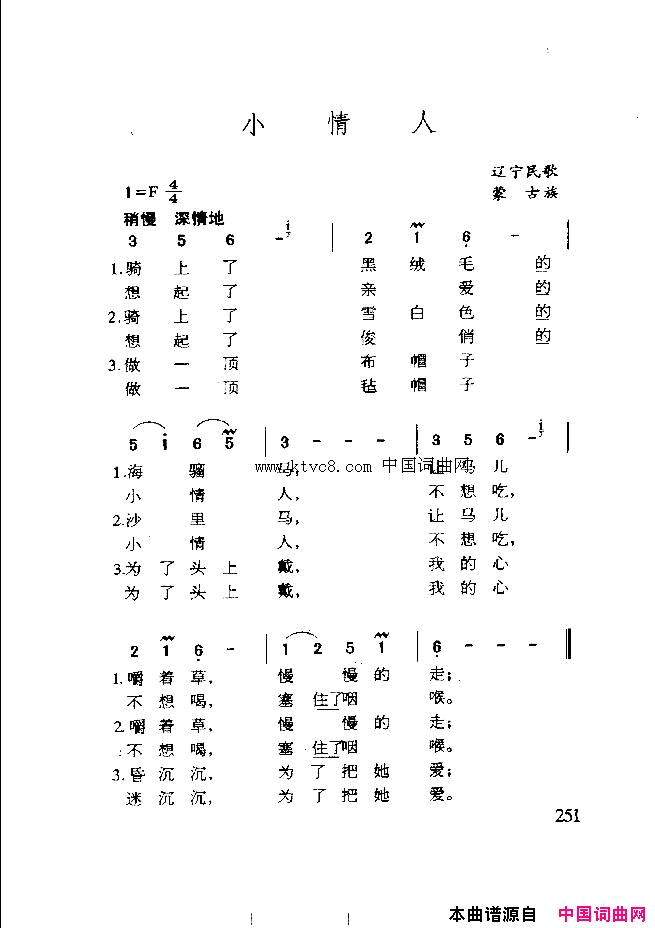 小 情 人
辽宁民歌
1=F 4/4
蒙 古 族
稍慢 深情地
3 5 6 - i/7 | 2 1 6 - |
1.骑 上 了 黑 绒 毛 的
想 起 了 亲 爱 的
2.骑 上 了 雪 白 色 的
想 起 了 俊 俏 的
3.做 一 顶 布 帽 子
做 一 顶 毡 帽 子
5 i 6 5 | 3 - - - | 3 5 6 - i/7 |
www.ktvc8.com 中国词曲网
1.海 骝 马, 让 马 儿
小 情 人, 不 想 吃,
2.沙 里 马, 让 马 儿
小 情 人, 不 想 吃,
3.为 了 头 上 戴, 我 的 心
为 了 头 上 戴, 我 的 心
2 1 6 - | 1 2 5 1 | 6 - - - ‖
1.嚼 着 草, 慢 慢 的 走;
不 想 喝, 塞 住了 咽 喉。
2.嚼 着 草, 慢 慢 的 走;
不 想 喝, 塞 住了 咽 喉。
3.昏 沉 沉, 为 了 把 她 爱;
迷 沉 沉, 为 了 把 她 爱。
251
本曲谱源自 中国词曲网